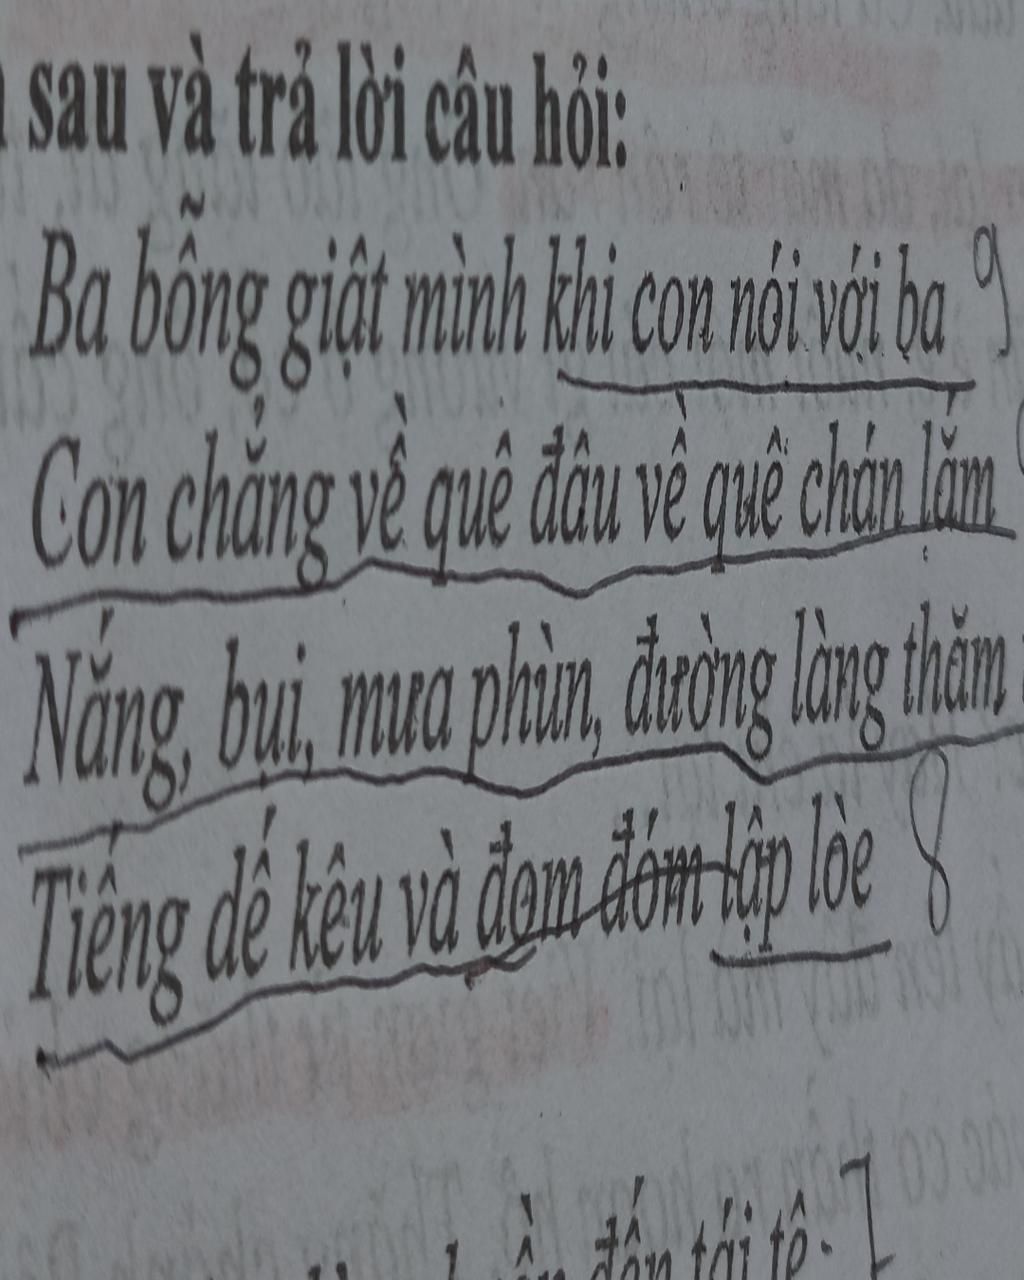 sau và trả lời câu hỏi:
Ba bỗng giật mình khi con nói với ba 9
Con chẳng về quê đâu về quê chán lắm
Nắng, bụi, mưa phùn, đường làng thăm
Tiếng dế kêu và đom đóm lập lòe 8
đến tái tê.